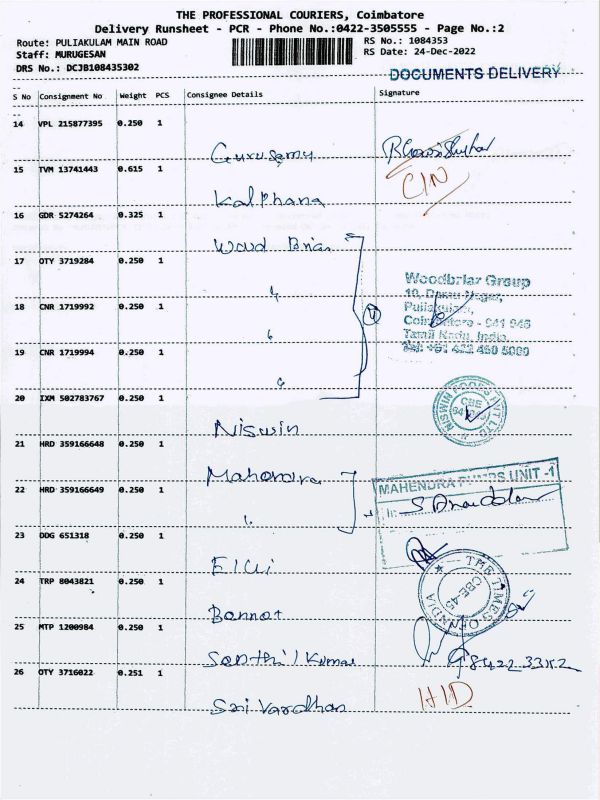 THE PROFESSIONAL COURIERS, Coimbatore
Delivery Runsheet - PCR - Phone No.:0422-3505555 - Page No.:2
Route: PULIAKULAM MAIN ROAD
RS No.: 1084353
Staff: MURUGESAN
RS Date: 24-Dec-2022
DRS No.: DCJB108435302
DOCUMENTS DELIVERY
S No Consignment No Weight PCS Consignee Details Signature
14 VPL 215877395 0.250 1
Gurusamy
15 TVM 13741443 0.615 1
C/N
Kalphana
16 GDR 5274264 0.325 1
Wood Briar
17 OTY 3719284 0.250 1
Woodbriar Group
Puliakulam,
18 CNR 1719992 0.250 1
4
Tamil Nadu, India.
19 CNR 1719994 0.250 1
20 IXM 502783767 0.250 1
CBE
Niswin
21 HRD 359166648 0.250 1
Mahendra
MAHENDRA PUMPS UNIT -1
22 HRD 359166649 0.250 1
23 DDG 651318 0.250 1
Elgi
THE TIMES OF INDIA
CBE-45
24 TRP 8043821 0.250 1
25 MTP 1200984 0.250 1
Senthil Kumar
26 OTY 3716022 0.251 1
HID
Sri Vardhan